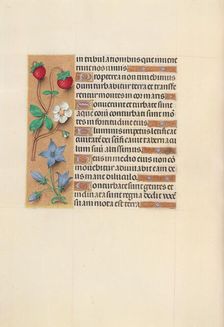 in tribulationibus que invene
runt nos nimis
Propterea non timebimus
dum turbabitur terra et transfe
rentur montes in cor maris
Sonuerunt et turbate sunt
aque eorum conturbati sunt
montes in fortitudine eius
Fluminis impetus letificat
civitatem dei sanctificavit taberna
culum suum altissimus
Deus in medio eius non co
movebitur adiuvabit eam de
us mane diluculo
Conturbate sunt gentes et
inclinata sunt regna dedit voce
suam mota est terra